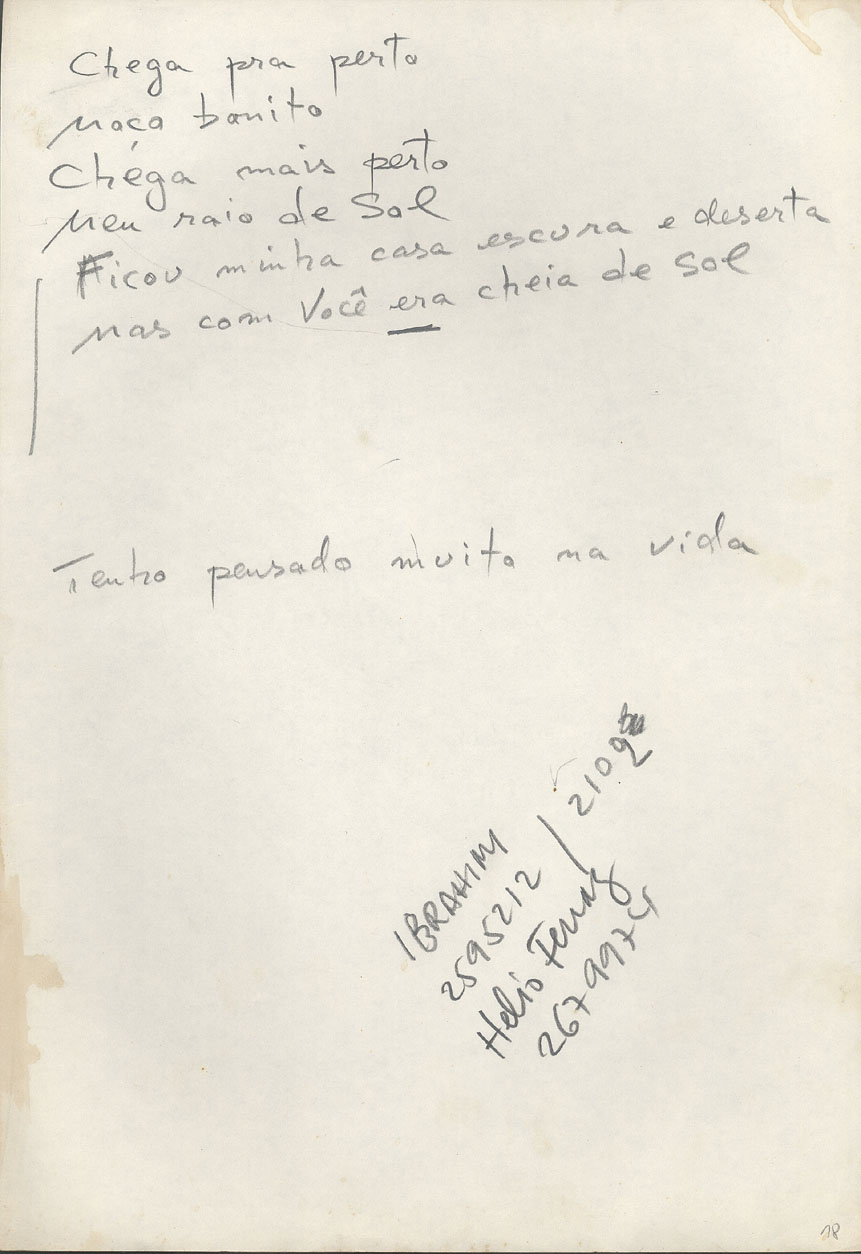 Chega pra perto
Moço bonito
Chega mais perto
Meu raio de Sol
Ficou minha casa escura e deserta
Mas com Você era cheia de Sol
Tenho pensado muito na vida
IBRAHIM
2595212 / 2109
Helio Ferraz
2679974
18